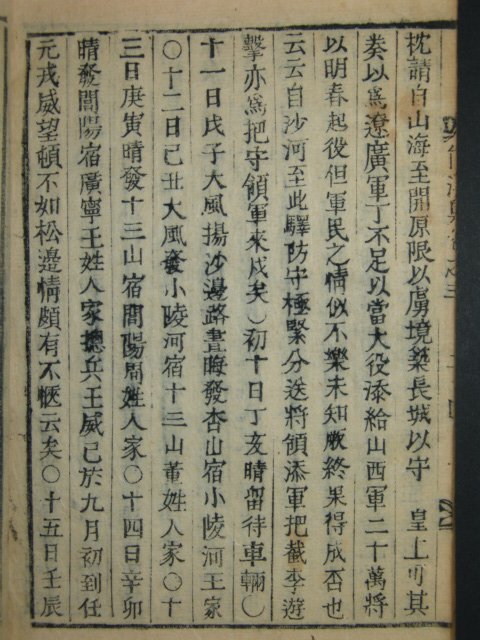 枕請自山海至開原限以虜境築長城以守　皇上可其
奏以爲遼廣軍丁不足以當大役添給山西軍二十萬將
以明春起役但軍民之情似不樂未知厥終果得成否也
云云自沙河至此驛防守極緊分送將領添軍把截李遊
擊亦爲把守領軍來戍矣〇初十日丁亥晴留待車輛〇
十一日戊子大風揚沙邊路晝晦發杏山宿小陵河王家
〇十二日己丑大風發小陵河宿十三山董姓人家〇十
三日庚寅晴發十三山宿閭陽周姓人家〇十四日辛卯
晴發閭陽宿廣寧王姓人家摠兵王威已於九月初到任
元戎威望頓不如松邊情頗有不愜云矣〇十五日壬辰